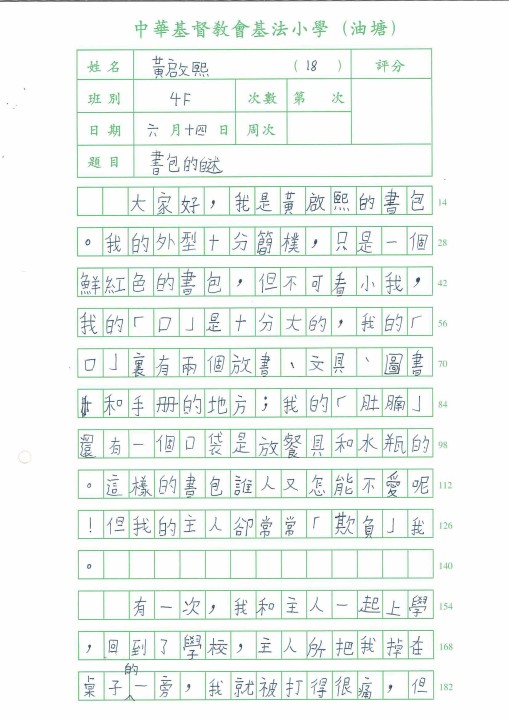 中華基督教會基法小學（油塘）
姓名 黃啟熙 （18） 評分
班別 4F 次數 第 次
日期 六月十四日 周次
題目 書包的自述
大家好，我是黃啟熙的書包 14
。我的外型十分簡樸，只是一個 28
鮮紅色的書包，但不可看小我， 42
我的「口」是十分大的，我的「 56
口」裏有兩個放書、文具、圖書 70
和手册的地方；我的「肚腩」 84
還有一個口袋是放餐具和水瓶的 98
。這樣的書包誰人又怎能不愛呢 112
！但我的主人卻常常「欺負」我 126
。 140
有一次，我和主人一起上學 154
，回到了學校，主人所把我掉在 168
桌子的一旁，我就被打得很痛，但 182